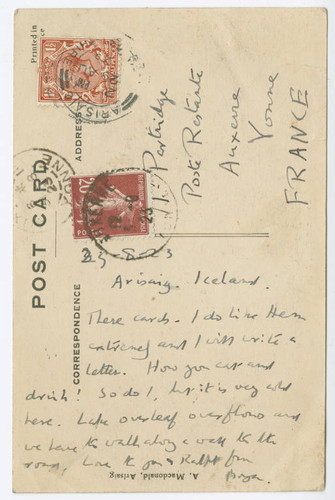 POST CARD
Printed in
ADDRESS
Partridge
Poste Restante
Auxerre
Yonne
FRANCE
ARISAIG
YONNE
20
CORRESPONDENCE
23-8-23
Arisaig. Iceland.
These cards. I do like them
extremely and I will write a
letter. How you eat and
drink! So do I, but it is very cold
here. Lake overleaf overflows and
we have to walk along a wall to the
road. Love to you & Ralph from
A. Macdonald, Arisaig